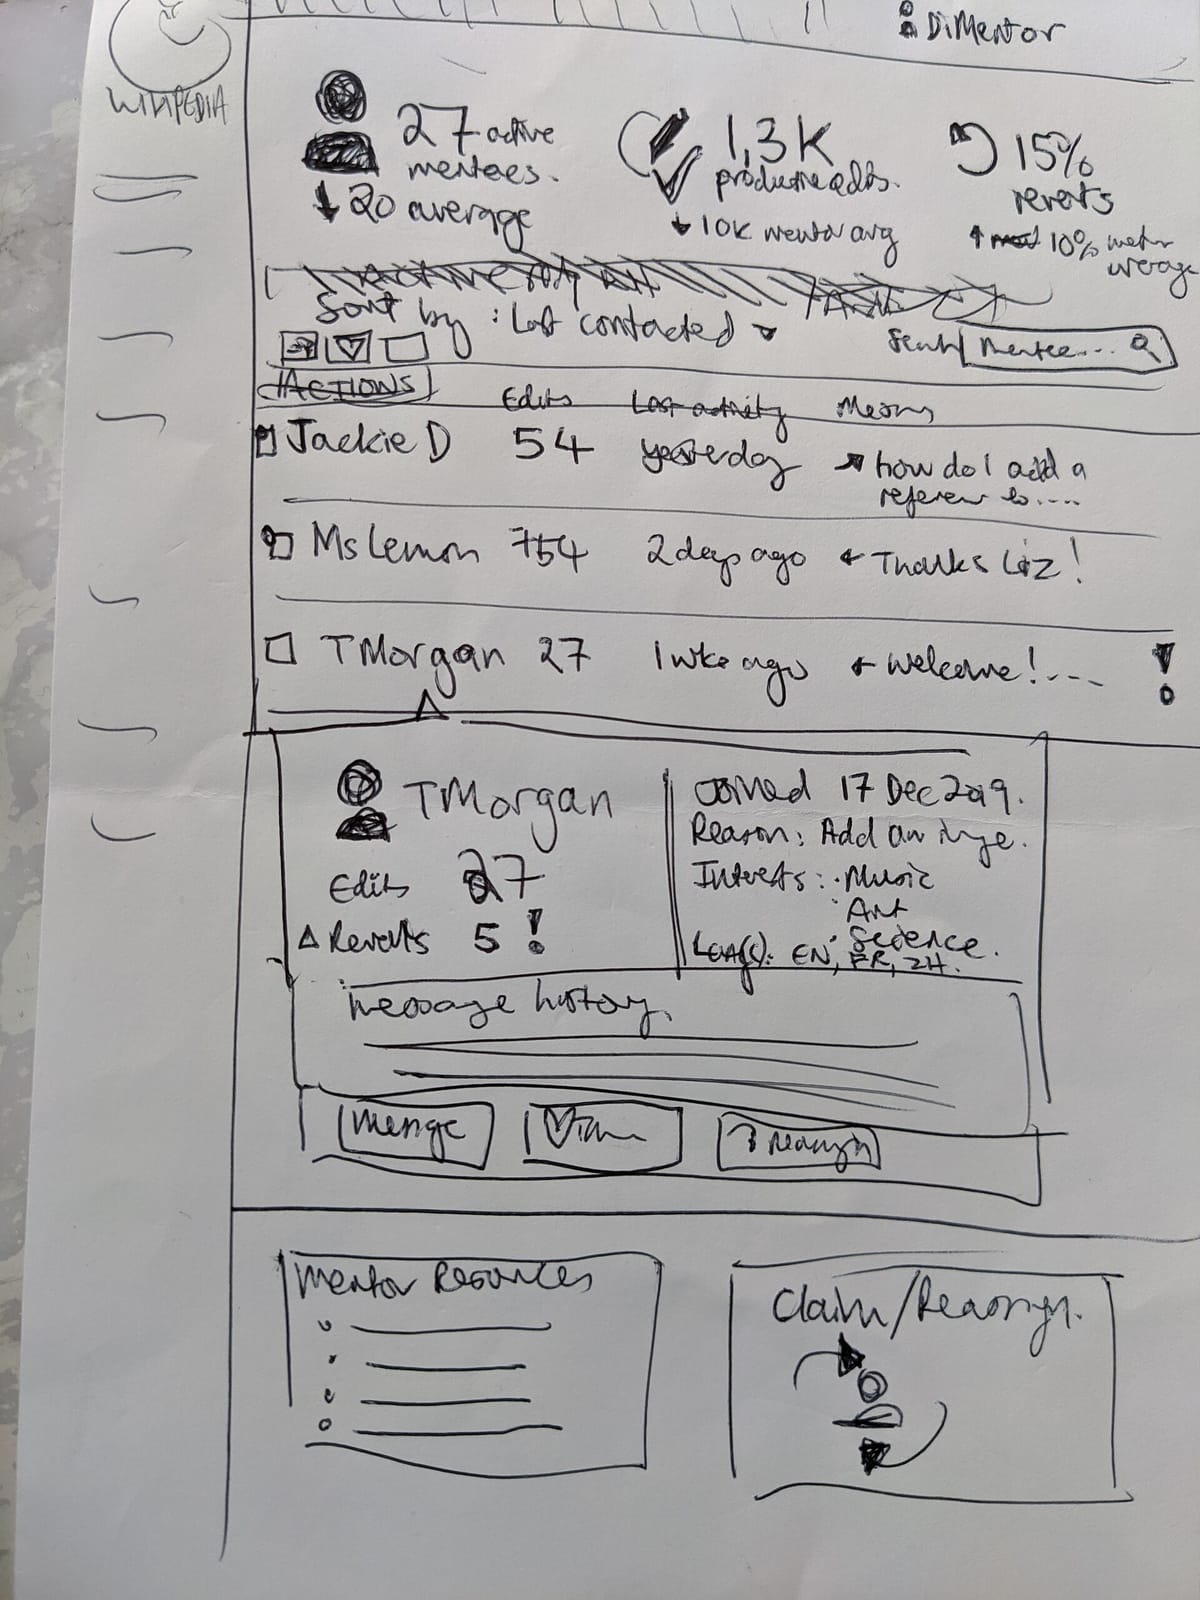 DiMentor
WIKIPEDIA
27 active
mentees.
↓ 20 average
1,3K
productive edits.
↓ 10K mentor avg
15%
reverts
↑ 10% mentor
average
Sort by : Last contacted
Search Mentee...
ACTIONS
Edits Last activity
Jackie D 54 yesterday ↗ how do I add a
to....
Ms Lemon 754 2 days ago ← Thanks Liz!
TMorgan 27 1 wk ago ← welcome!... !
TMorgan
Edits 27
Δ Reverts 5 !
Joined 17 Dec 2019.
Reason: Add an
Interests: · Music
· Art
· Science.
EN, FR, ZH.
message history.
Mentor Resources
Claim/Reassign.